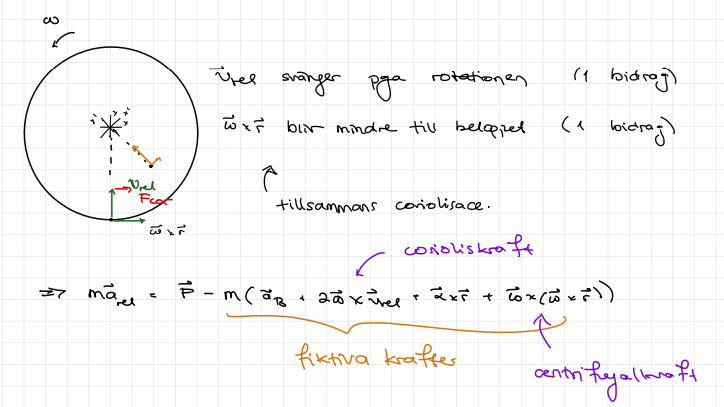 ω
v⃗rel svänger pga rotationen (1 bidrag)
ω⃗ × r⃗ blir mindre till beloppet (1 bidrag)
v⃗rel
Fcor
ω⃗ × r⃗
tillsammans coriolisacc.
corioliskraft
⇒ ma⃗rel = P⃗ - m(a⃗B + 2ω⃗ × v⃗rel + α⃗ × r⃗ + ω⃗ × (ω⃗ × r⃗))
fiktiva krafter
centrifugalkraft